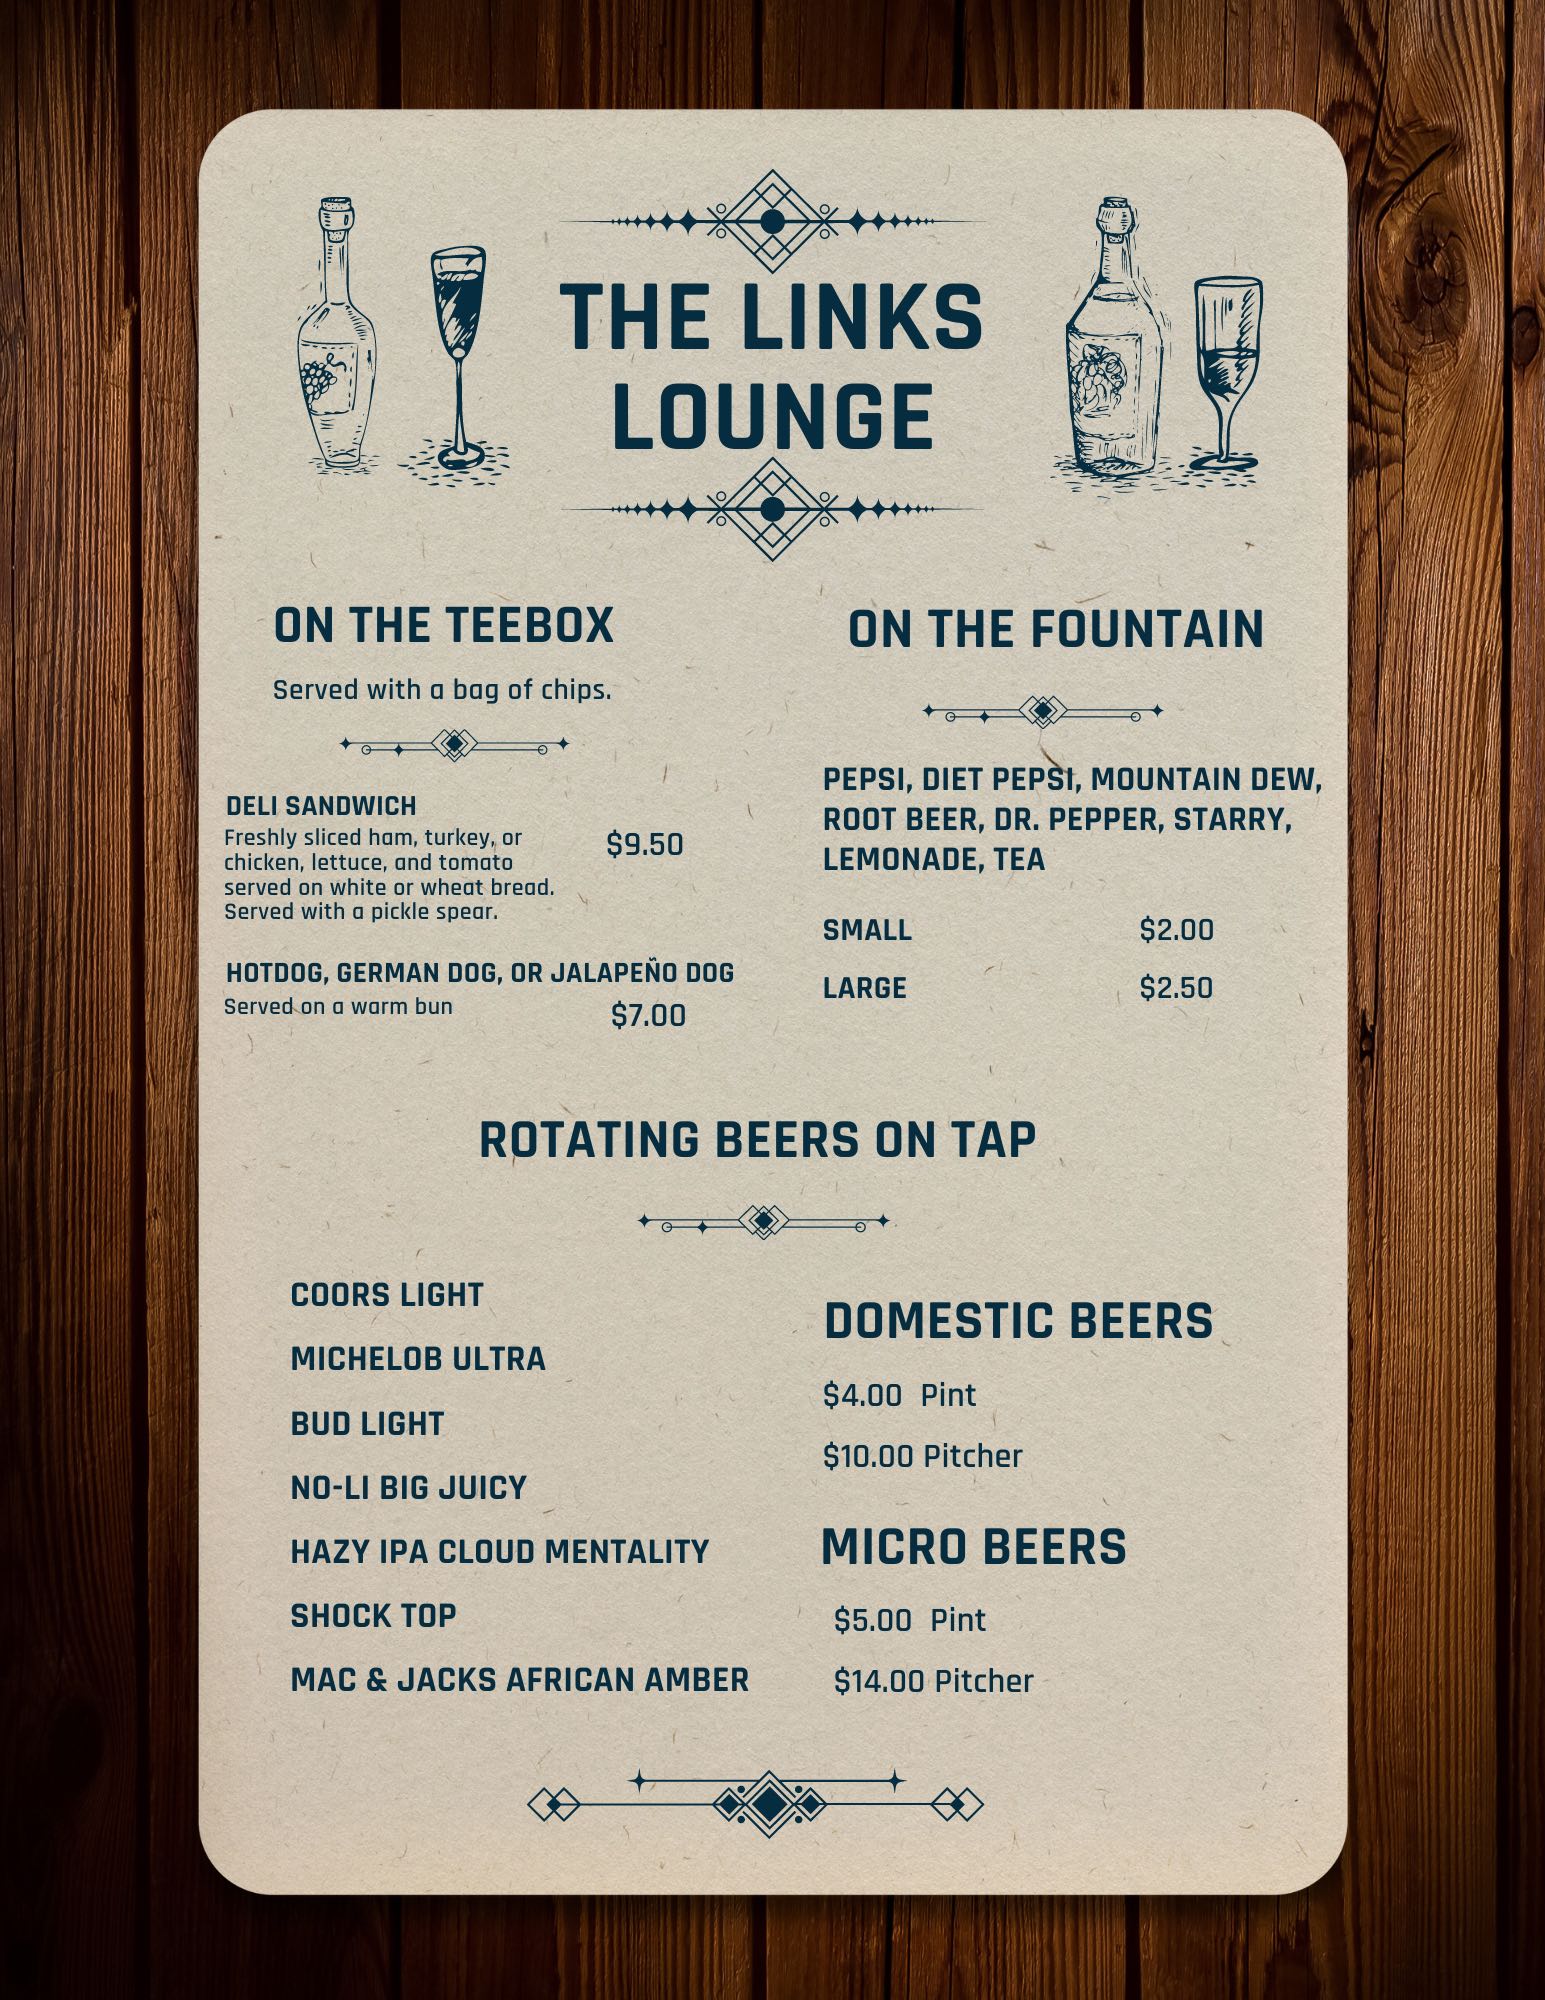 THE LINKS
LOUNGE
ON THE TEEBOX
Served with a bag of chips.
DELI SANDWICH
Freshly sliced ham, turkey, or
chicken, lettuce, and tomato
served on white or wheat bread.
Served with a pickle spear.
$9.50
HOTDOG, GERMAN DOG, OR JALAPEÑO DOG
Served on a warm bun
$7.00
ON THE FOUNTAIN
PEPSI, DIET PEPSI, MOUNTAIN DEW,
ROOT BEER, DR. PEPPER, STARRY,
LEMONADE, TEA
SMALL $2.00
LARGE $2.50
ROTATING BEERS ON TAP
COORS LIGHT
MICHELOB ULTRA
BUD LIGHT
NO-LI BIG JUICY
HAZY IPA CLOUD MENTALITY
SHOCK TOP
MAC & JACKS AFRICAN AMBER
DOMESTIC BEERS
$4.00 Pint
$10.00 Pitcher
MICRO BEERS
$5.00 Pint
$14.00 Pitcher